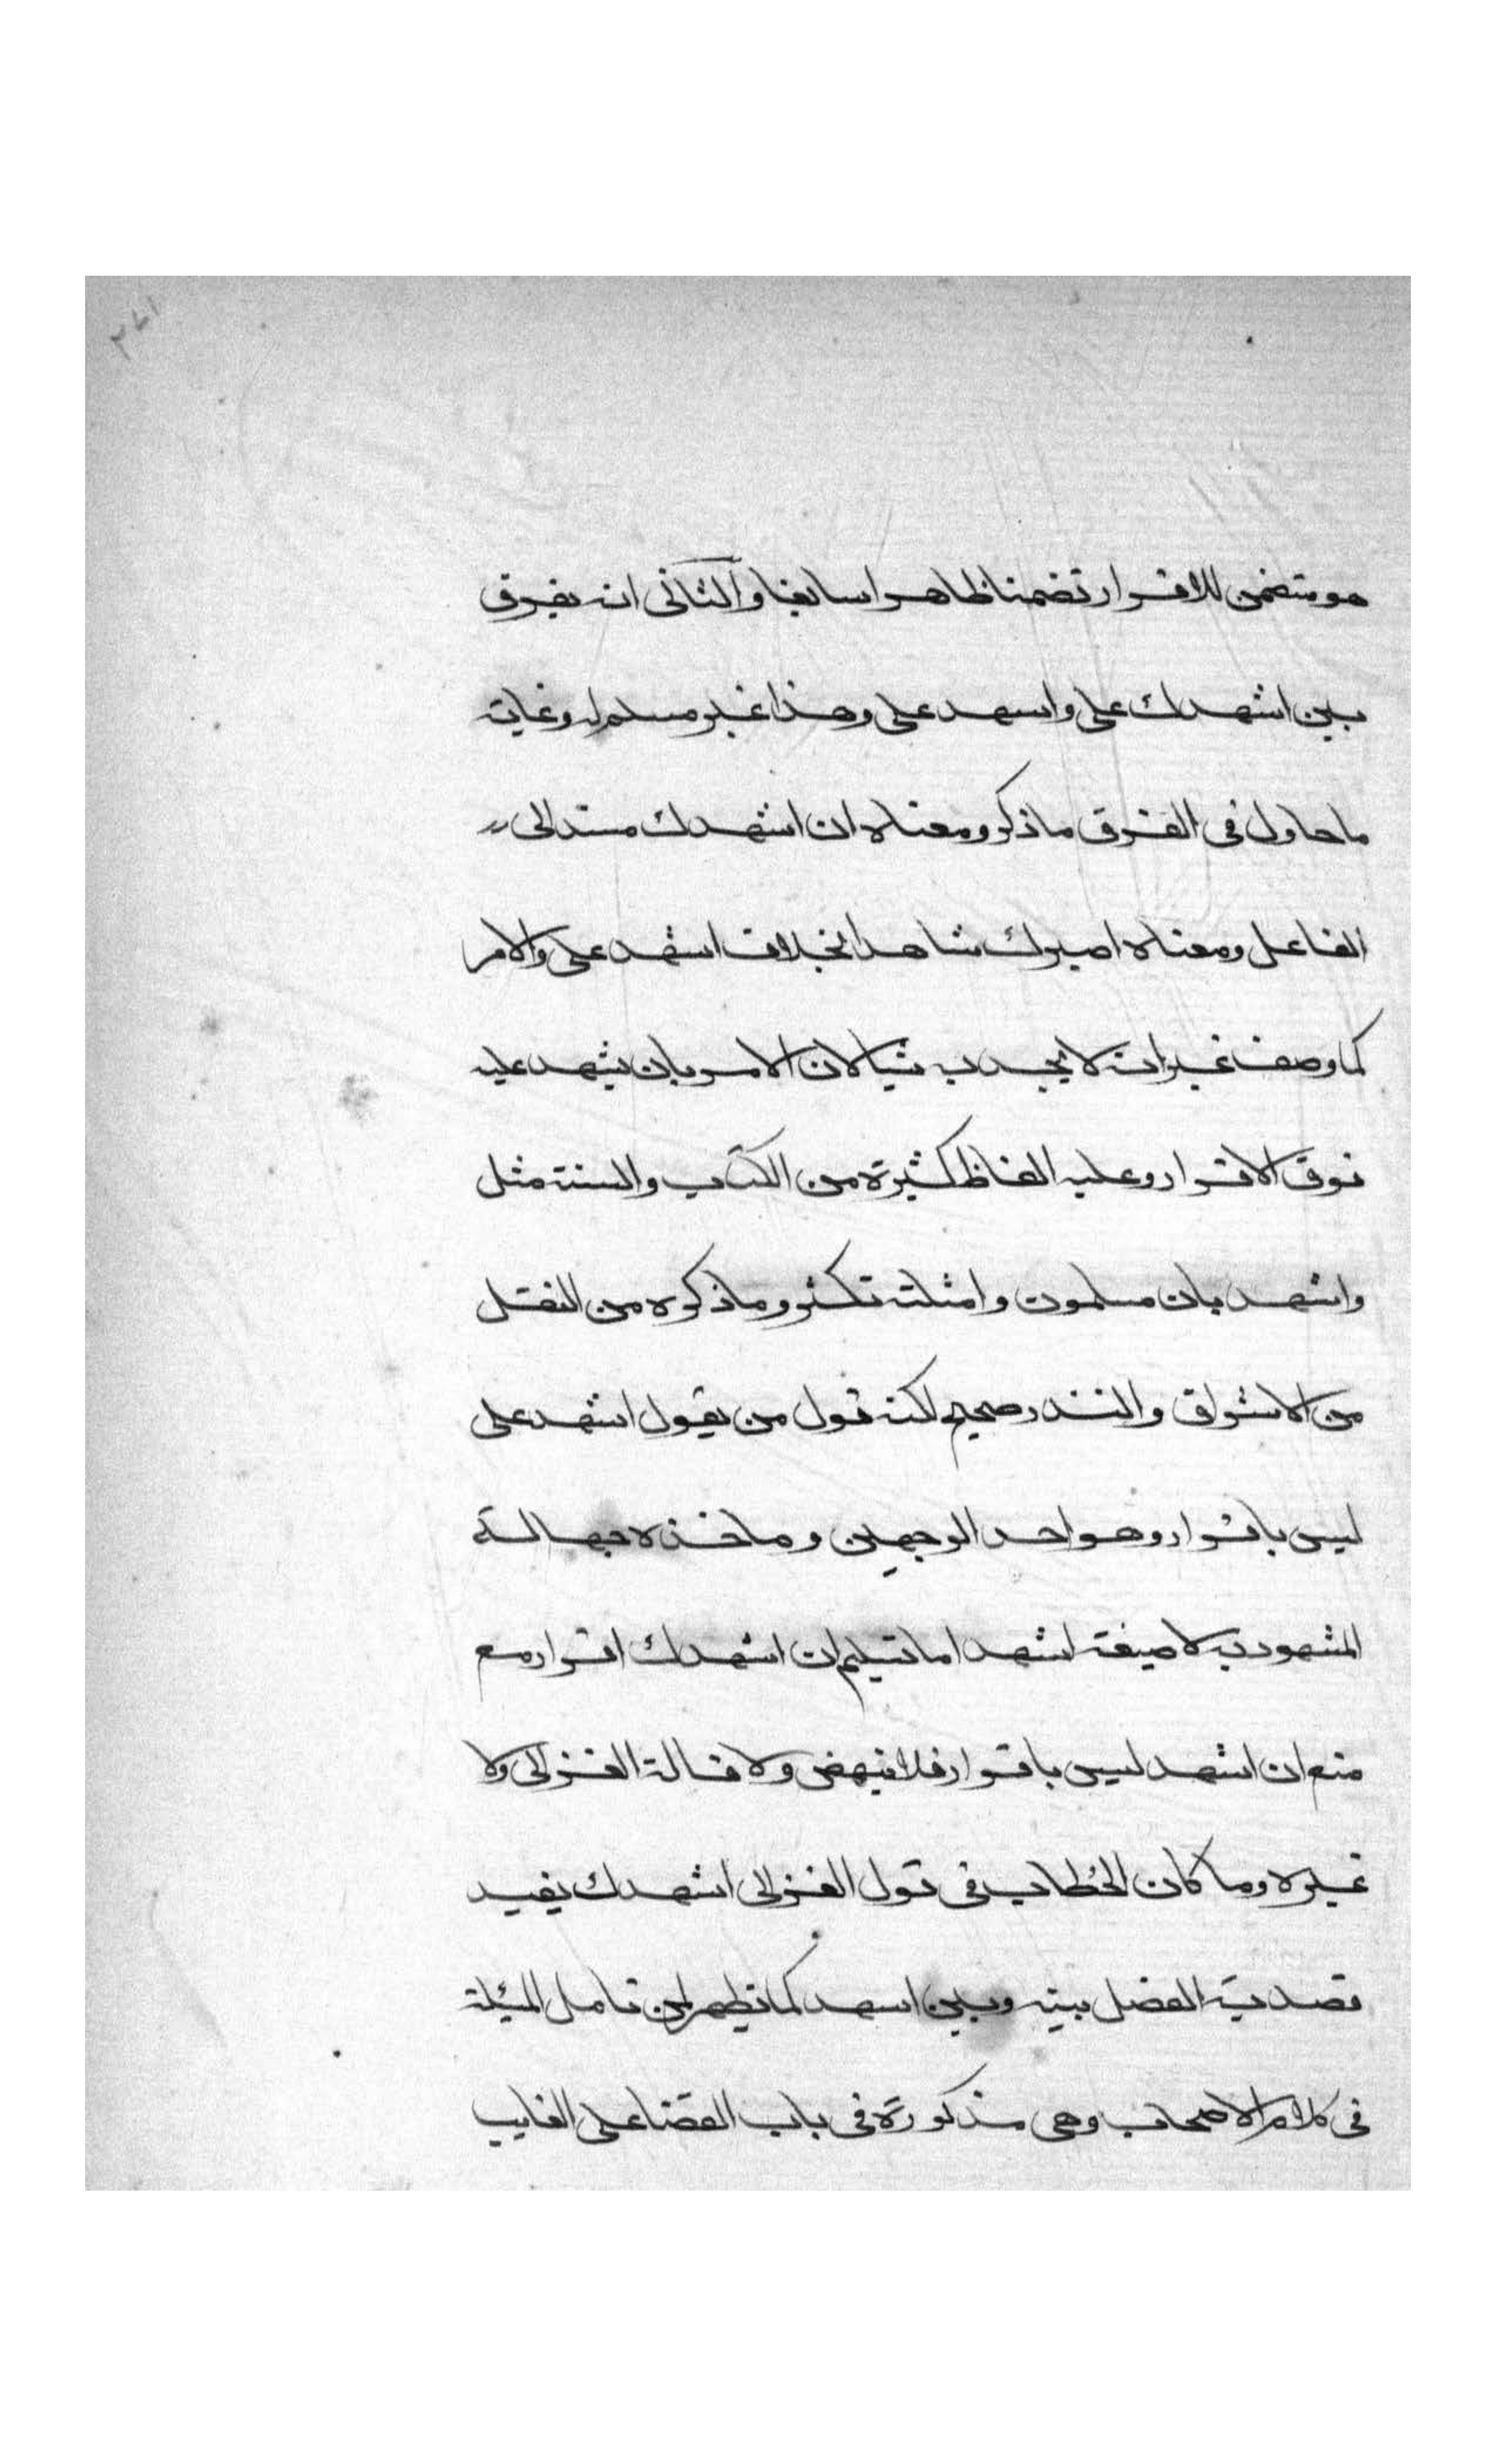 ٢٧١
هو متضمن للاقرار تضمنا ظاهرا سايغا والثانى انه يفرق
بين اشهدك على واسهد على وهذا غير مسلم له وغايته
ما حاول فى الفرق ما ذكر ومعناه ان اشهدك مسند الى
الفاعل ومعناه اصيرك شاهدا بخلاف اشهد على والامر
كما وصف غير انه لا يجديه شيا لان الامر بان يشهد عليه
فوق الاقرار وعليه الفاظ كثيرة من الكتاب والسنة مثل
واشهد بان مسلمون وامثلته تكثر وما ذكره من النقل
من الاشراق والنذر صحيح لكنه قول من يقول اشهد على
ليس باقرار وهو احد الوجهين وماخذه جهالة
المشهود به لا صيغة اشهد اما تسليم ان اشهدك اقرار مع
منع ان اشهد ليس باقرار فلا ينهض ولا قاله الغزالى ولا
غيره وما كان الخطاب فى قول الغزالى اشهدك يفيد
قصديه الفصل بينه وبين اسهد كما يظهر لمن تامل المسئلة
فى كلام الاصحاب وهى مذكورة فى باب القضا على الغايب